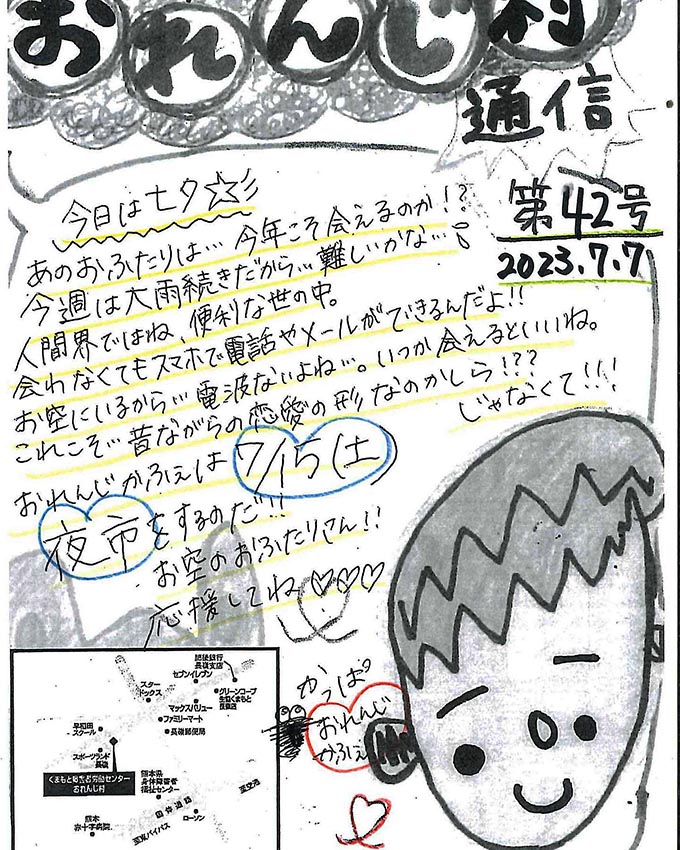 おれんじ村
通信
第42号
2023.7.7
今日は七夕☆
あのおふたりは… 今年こそ会えるのか!?
今週は大雨続きだから… 難しいかな…。
人間界ではね、便利な世の中。
会わなくてもスマホで電話やメールができるんだよ!!
お空にいるから… 電波ないよね…。いつか会えるといいね。
これこそ… 昔ながらの恋愛の形なのかしら!??
じゃなくて!!!
おれんじかふぇは 7/15(土)
夜市をするのだ!!
お空のおふたりさん!!
応援してね♡♡♡
かっぱ
おれんじ
かふぇ
肥後銀行
長嶺支店
セブンイレブン
スター
ドックス
グリーンコープ
生協くまもと
マックスバリュー
ファミリーマート
長嶺郵便局
早和田
スクール
スポーツランド
長嶺
くまもと障害者労働センター
おれんじ村
熊本県
身体障害者
福祉センター
至空港
国体道路
ローソン
熊本
赤十字病院
至東バイパス